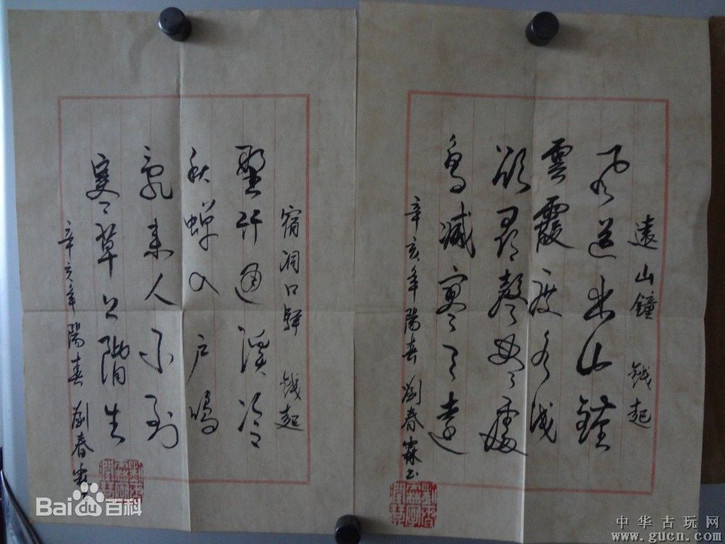 遠山鐘 錢起
风送出山鐘
雲霞度水浅
欲尋聲盡處
鳥滅寥天遠
辛亥年陽春 劉春霖书
宿洞口驛 錢起
墅竹通溪冷
秋蝉入户鳴
亂来人不到
寒草上階生
辛亥年陽春 劉春霖
Bai百科
中华古玩网
www.gucn.com